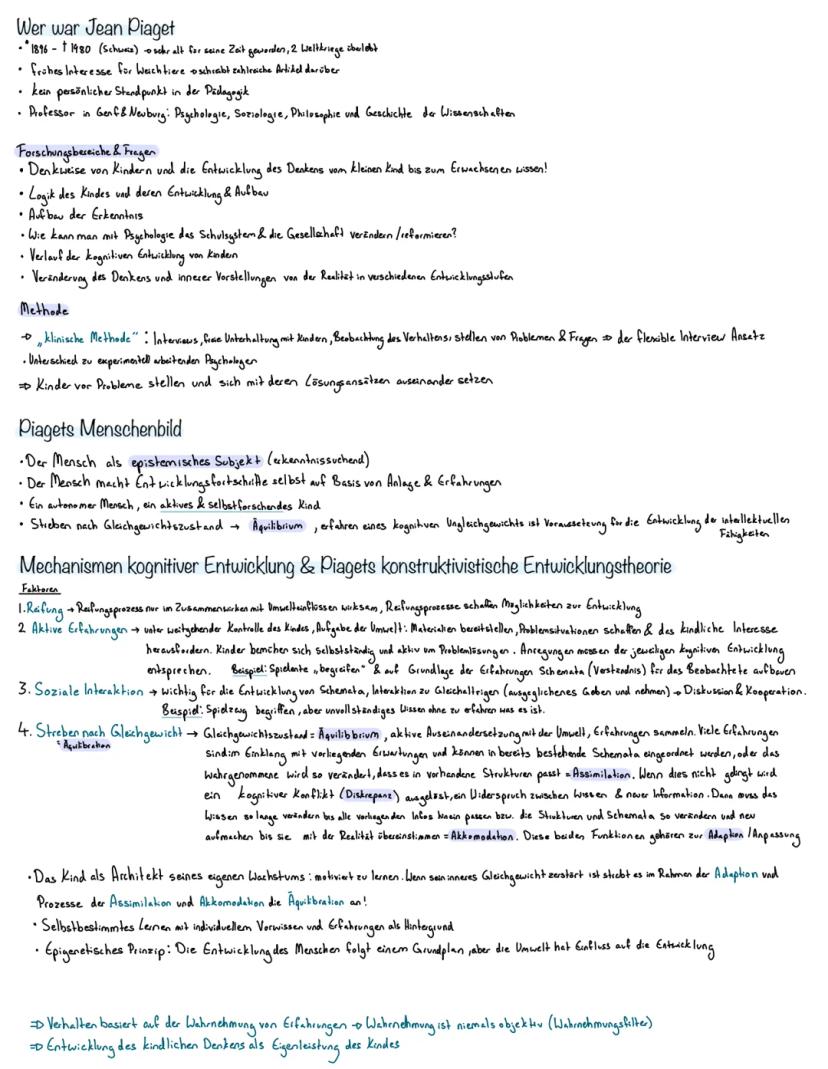 Wer war Jean Piaget
• *1896 - †1980 (Schweiz) → sehr alt für seine Zeit geworden, 2 Weltkriege überlebt
• frühes Interesse für Weichtiere → schreibt zahlreiche Artikel darüber
• kein persönlicher Standpunkt in der Pädagogik
• Professor in Genf & Neuburg: Psychologie, Soziologie, Philosophie und Geschichte der Wissenschaften
Forschungsbereiche & Fragen
• Denkweise von Kindern und die Entwicklung des Denkens vom kleinen Kind bis zum Erwachsenen wissen!
• Logik des Kindes und deren Entwicklung & Aufbau
• Aufbau der Erkenntnis
• Wie kann man mit Psychologie das Schulsystem & die Gesellschaft verändern /reformieren?
• Verlauf der kognitiven Entwicklung von Kindern
• Veränderung des Denkens und innerer Vorstellungen von der Realität in verschiedenen Entwicklungsstufen
Methode
→ „klinische Methode": Interviews, freie Unterhaltung mit Kindern, Beobachtung des Verhaltens, stellen von Problemen & Fragen ⇒ der flexible Interview Ansatz
• Unterschied zu experimentell arbeitenden Psychologen
⇒ Kinder vor Probleme stellen und sich mit deren Lösungsansätzen auseinander setzen
Piagets Menschenbild
• Der Mensch als epistemisches Subjekt (erkenntnissuchend)
• Der Mensch macht Entwicklungsfortschritte selbst auf Basis von Anlage & Erfahrungen
• Ein autonomer Mensch, ein aktives & selbstforschendes Kind
• Streben nach Gleichgewichtszustand → Äquilibrium, erfahren eines kognitiven Ungleichgewichts ist Voraussetzung für die Entwicklung der intellektuellen
Fähigkeiten
Mechanismen kognitiver Entwicklung & Piagets konstruktivistische Entwicklungstheorie
Faktoren
1. Reifung → Reifungsprozess nur im Zusammenwirken mit Umwelteinflüssen wirksam, Reifungsprozesse schaffen Möglichkeiten zur Entwicklung
2 Aktive Erfahrungen → unter weitgehender Kontrolle des Kindes, Aufgabe der Umwelt: Materialien bereitstellen, Problemsituationen schaffen & das kindliche Interesse
herausfordern. Kinder bemühen sich selbstständig und aktiv um Problemlösungen. Anregungen müssen der jeweiligen kognitiven Entwicklung
entsprechen. Beispiel: Spielente „begreifen" & auf Grundlage der Erfahrungen Schemata (Verständnis) für das Beobachtete aufbauen
3. Soziale Interaktion → wichtig für die Entwicklung von Schemata, Interaktion zu Gleichaltrigen (ausgeglichenes Geben und nehmen) → Diskussion & Kooperation.
Beispiel: Spielzeug begriffen, aber unvollständiges Wissen ohne zu erfahren was es ist.
4. Streben nach Gleichgewicht → Gleichgewichtszustand = Äquilibrium, aktive Auseinandersetzung mit der Umwelt, Erfahrungen sammeln. Viele Erfahrungen
= Äquilibration
sind im Einklang mit vorliegenden Erwartungen und können in bereits bestehende Schemata eingeordnet werden, oder das
Wahrgenommene wird so verändert, dass es in vorhandene Strukturen passt = Assimilation. Wenn dies nicht gelingt wird
ein kognitiver Konflikt (Diskrepanz) ausgelöst, ein Widerspruch zwischen Wissen & neuer Information. Dann muss das
Wissen so lange verändern bis alle vorliegenden Infos hinein passen bzw. die Strukturen und Schemata so verändern und neu
aufmachen bis sie mit der Realität übereinstimmen = Akkomodation. Diese beiden Funktionen gehören zur Adaption / Anpassung
• Das Kind als Architekt seines eigenen Wachstums: motiviert zu lernen. Wenn sein inneres Gleichgewicht zerstört ist strebt es im Rahmen der Adaption und
Prozesse der Assimilation und Akkomodation die Äquilibration an!
• Selbstbestimmtes Lernen mit individuellem Vorwissen und Erfahrungen als Hintergrund
• Epigenetisches Prinzip: Die Entwicklung des Menschen folgt einem Grundplan, aber die Umwelt hat Einfluss auf die Entwicklung
⇒ Verhalten basiert auf der Wahrnehmung von Erfahrungen → Wahrnehmung ist niemals objektiv (Wahrnehmungsfilter)
⇒ Entwicklung des kindlichen Denkens als Eigenleistung des Kindes